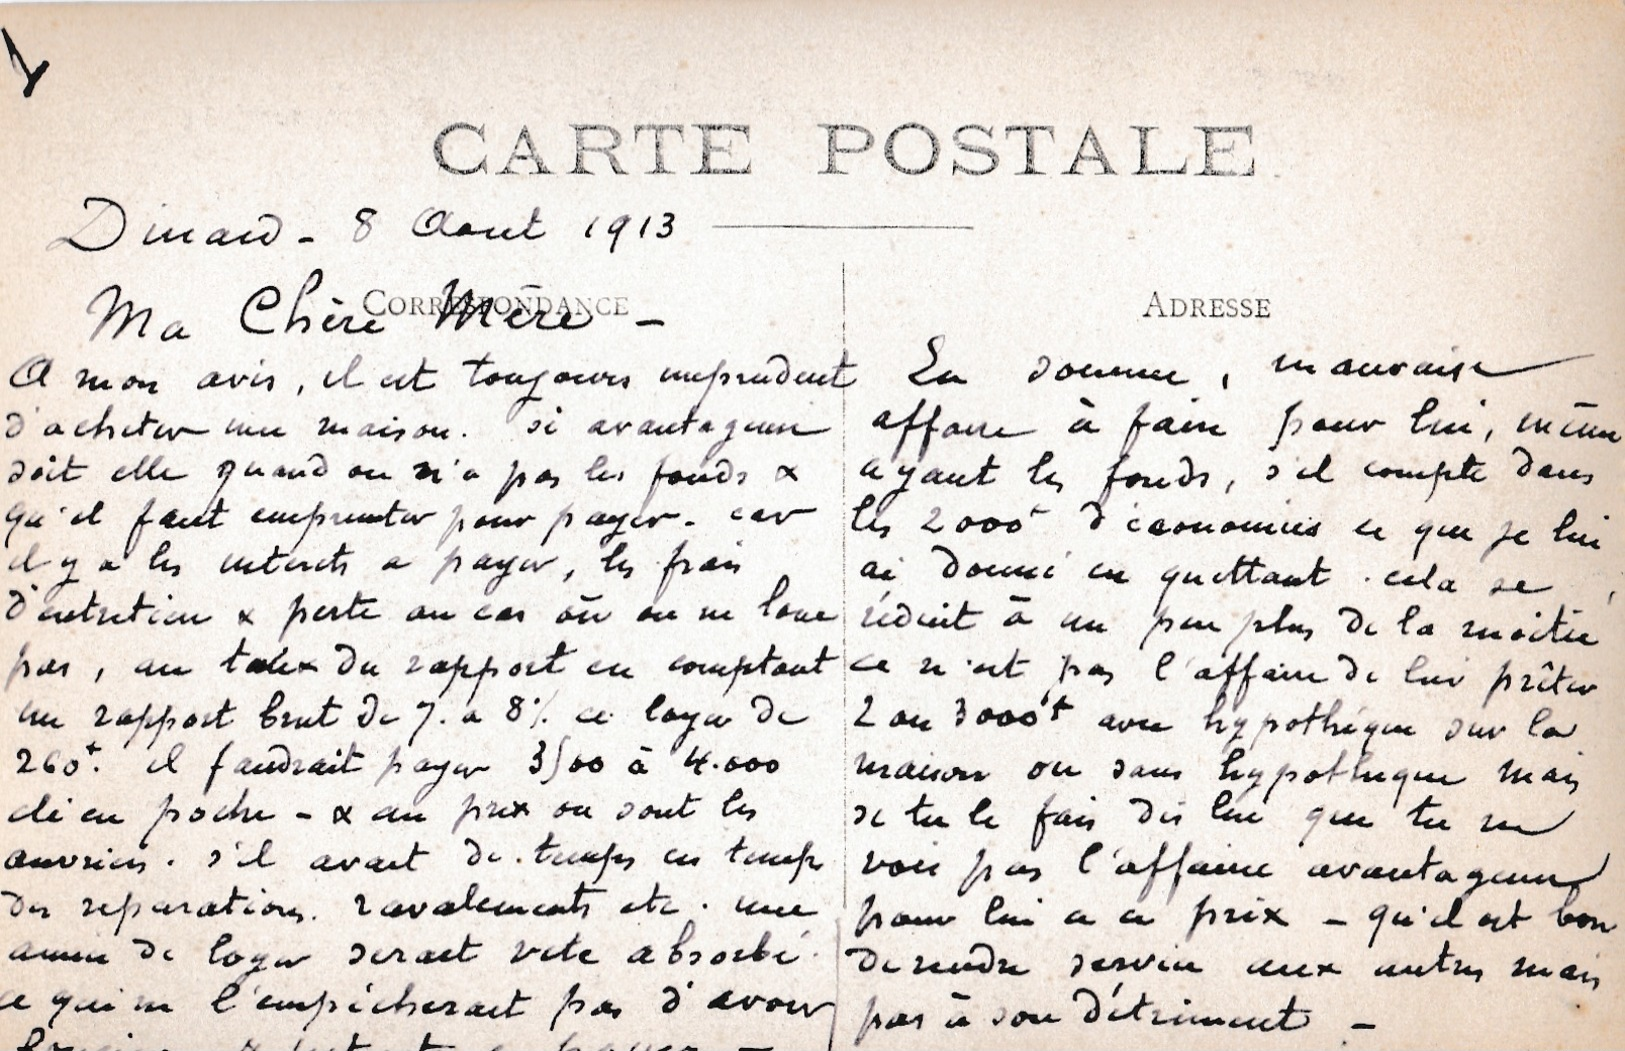 CARTE POSTALE
Dinard - 8 Aout 1913
CORRESPONDANCE
Ma Chère Mère -
A mon avis, il est toujours imprudent
d'acheter une maison. si avantageuse
soit elle quand on n'a pas les fonds &
qu'il faut emprunter pour payer. car
il y a les interets a payer, les frais
d'entretien & perte au cas où on ne loue
pas, au taux du rapport en comptant
un rapport brut de 7. a 8% ce loyer de
260f. il faudrait payer 3500 à 4.000
clé en poche - & au prix ou sont les
ouvriers. s'il avait de temps en temps
des reparations. ravalements etc. une
année de loyer serait vite absorbé.
ce qui ne l'empêcherait pas d'avoir
& a payer -
ADRESSE
En somme, mauvaise
affaire à faire pour lui, même
ayant les fonds, s'il compte dans
les 2000f d'économies ce que je lui
ai donné en quittant. cela se
réduit à un peu plus de la moitié
ce n'est pas l'affaire de lui prêter
2 ou 3000f avec hypothèque sur la
maison ou sans hypothèque mais
si tu le fais dis lui que tu ne
vois pas l'affaire avantageuse
pour lui a ce prix - qu'il est bon
de rendre service aux autres mais
pas à son détriment -